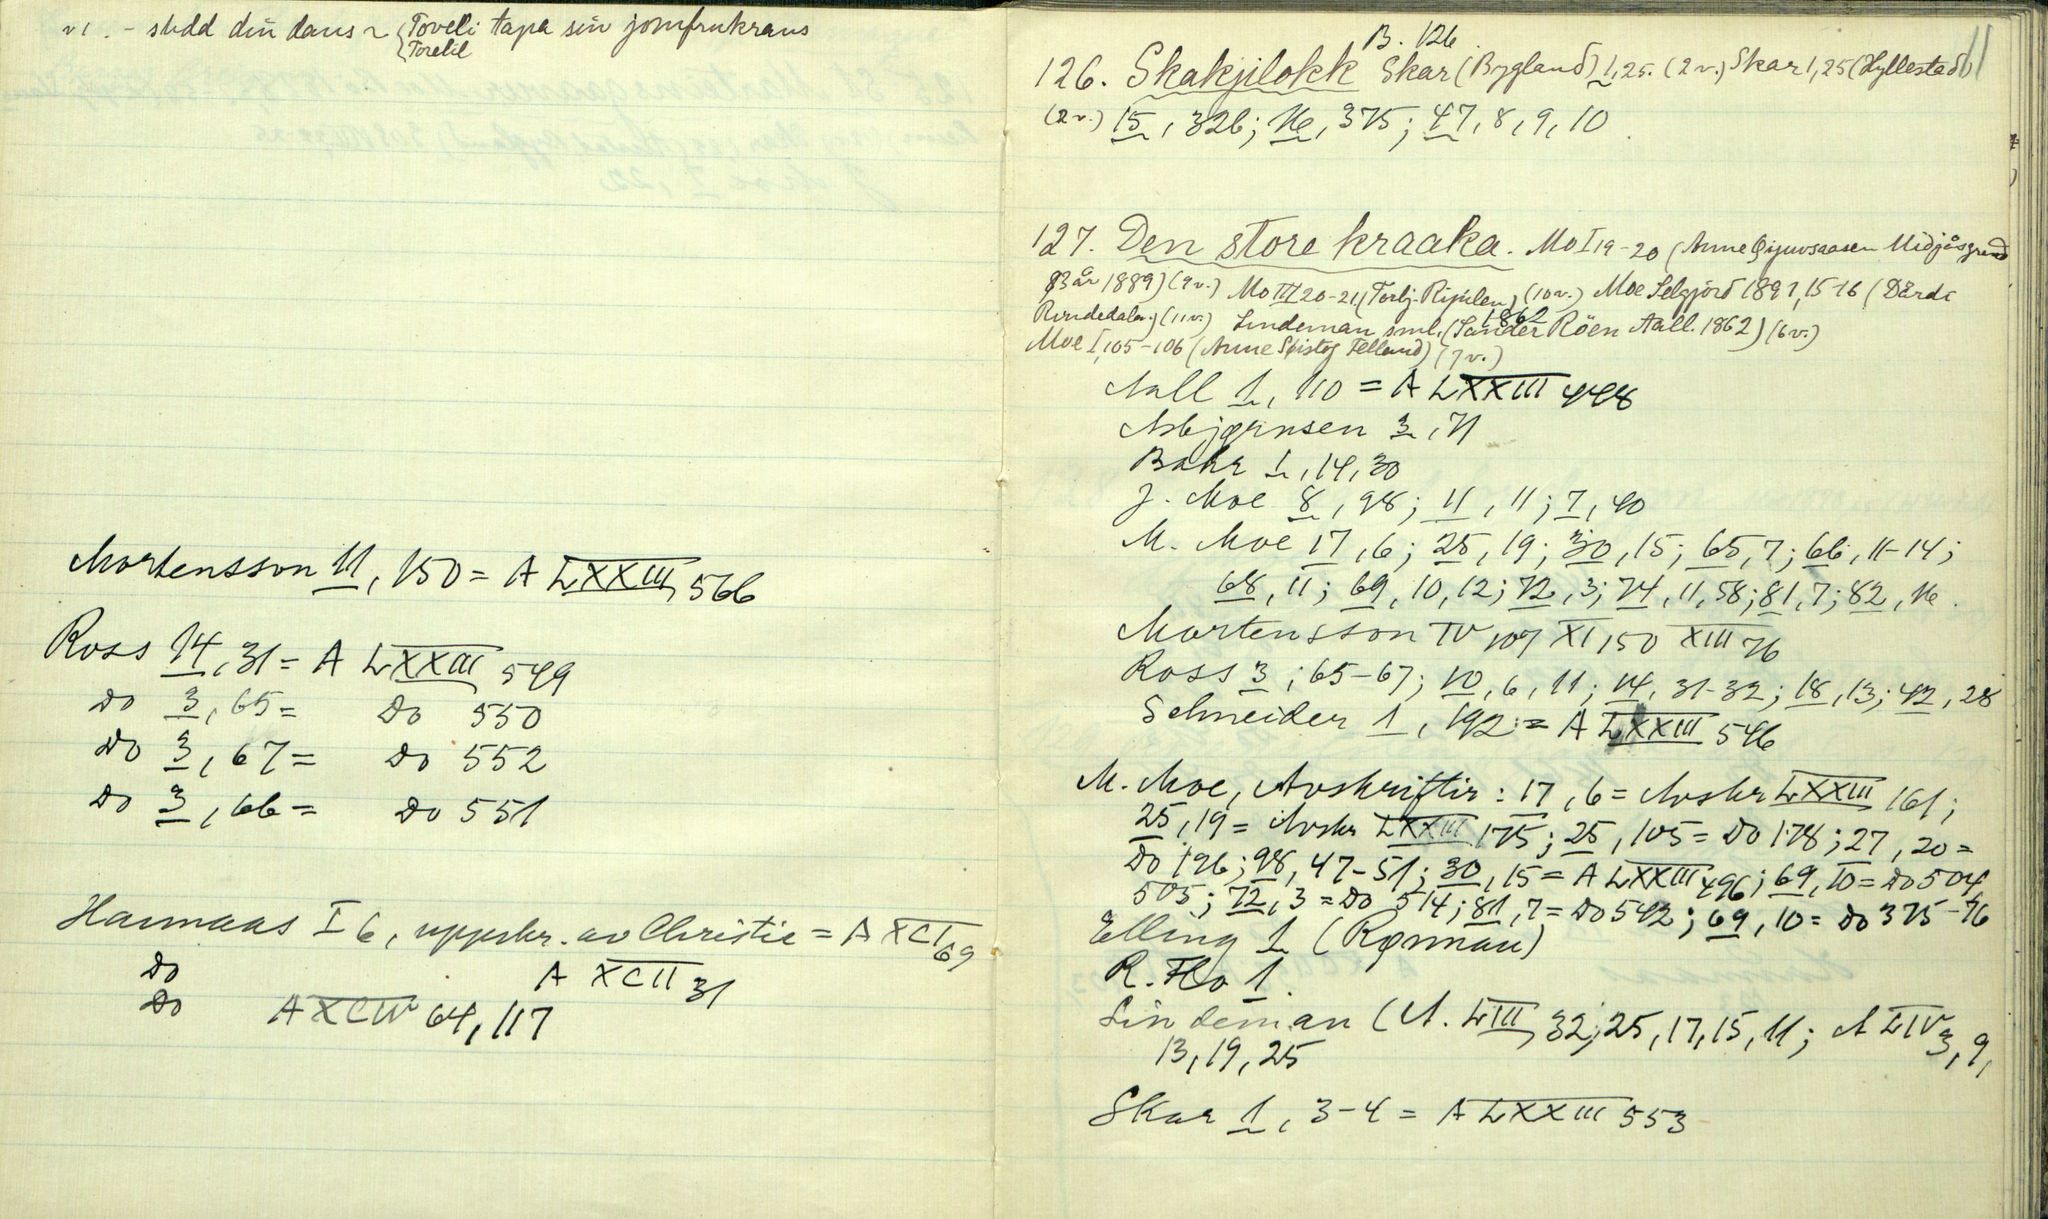 v1. - stidd din dans ~ { Tovelil tapa sin jomfrukrans
{ Torelil
Mortensson 11, 150 = A LXXIII, 566
Ross 14, 31 = A LXXIII 549
Do 3, 65 = Do 550
Do 3, 67 = Do 552
Do 3, 66 = Do 551
Hannaas I 6, uppskr. av Christie = A XCI 69
Do A XCII 31
Do A XCIV 64, 117
11
B. 126
126. Skakjilokk Skar (Bygland) 1, 25. (2 v.) Skar 1, 25 (Hyllestad)
(2 v.) 15, 326; 16, 375; 47, 8, 9, 10.
127. Den store kraaka. Mo I 19-20 (Anne Midjåsgrend
83 år 1889) (9 v.) Mo III 20-21, (Torbj. Ripilen) (10 v.) Moe Selgjord 1891, 15-16 (Dårdi
Rindedalen) (11 v.) Lindeman sml. 1862 (Sander Röen Aall. 1862) (6 v.)
Moe I, 105-106 (Anne Skistog Felland) (7 v.)
Aall 1, 110 = A LXXIII 448
Asbjørnsen 3, 71
Bakr 1, 14, 30
J. Moe 8, 98; 11, 11; 7, 40
M. Moe 17, 6; 25, 19; 30, 15; 65, 7; 66, 11-14;
68, 11; 69, 10, 12; 72, 3; 74, 11, 58; 81, 7; 82, 16.
Mortensson IV 107 XI 150 XIII 76
Ross 3; 65-67; 10, 6, 11; 14, 31-32; 18, 13; 42, 28
Schneider 1, 192 = A LXXIII 546
M. Moe, Avskriftir: 17, 6 = Avskr LXXIII 161;
25, 19 = Avskr LXXIII 175; 25, 105 = Do 178; 27, 20 =
Do 196; 98, 47-51; 30, 15 = A LXXIII 496; 69, 10 = Do 504,
505; 72, 3 = Do 514; 81, 7 = Do 542; 69, 10 = Do 375-76
Elling 1 (Rønnau)
R. Flo 1.
Lindeman (A. LIII, 32, 25, 17, 15, 11; A LIV 3, 9,
13, 19, 25
Skar 1, 3-4 = A LXXIII 553